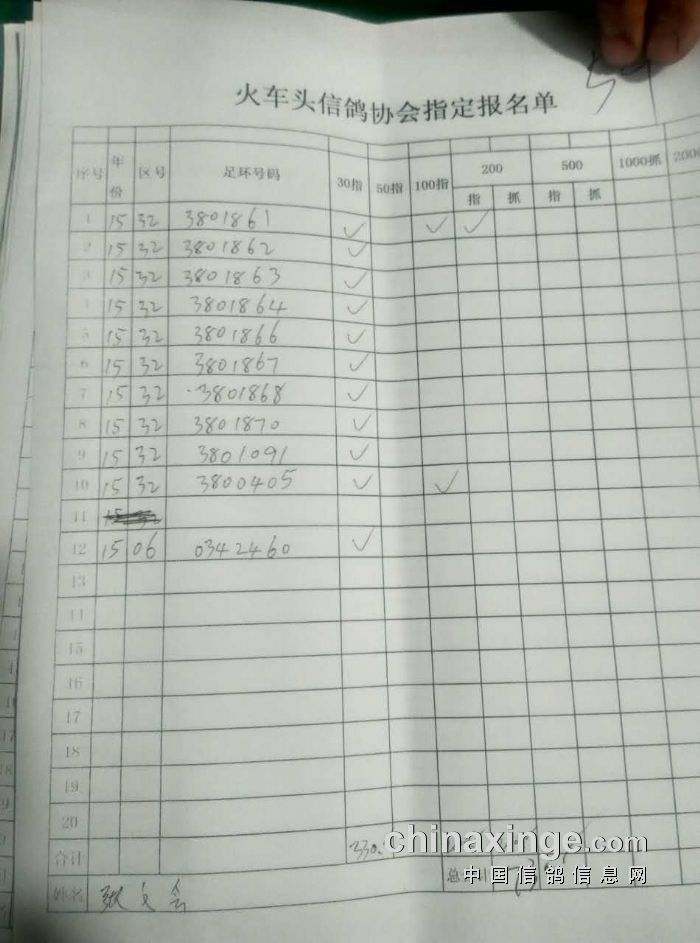 59
火车头信鸽协会指定报名单
序号 年份 区号 足环号码 30指 50指 100指 200 500 1000抓 2000
指 抓 指 抓
1 15 32 3801861 ✓ ✓ ✓
2 15 32 3801862 ✓
3 15 32 3801863 ✓
4 15 32 3801864 ✓
5 15 32 3801866 ✓
6 15 32 3801867 ✓
7 15 32 3801868 ✓
8 15 32 3801870 ✓
9 15 32 3801091 ✓
10 15 32 3800405 ✓ ✓
11
12 15 06 0342460 ✓
13
14
15
16
17
18
19
20
合计 330
总计
姓名
chinaxinge.com
中国信鸽信息网